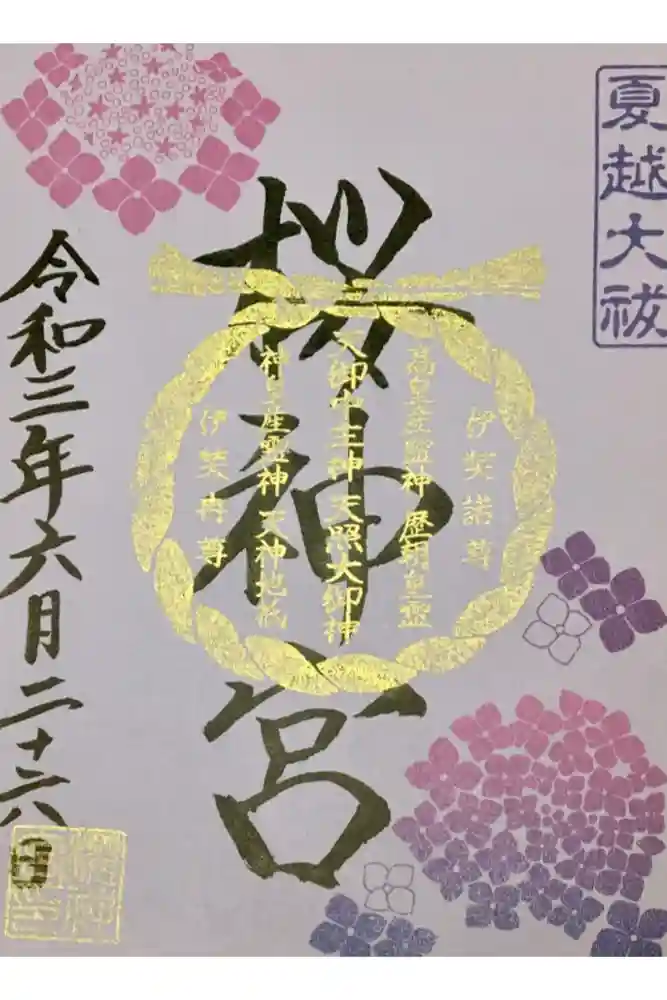 夏越大祓
伊奘諾尊
高皇産靈神 歴朝皇靈
天御中主神 天照大御神
神皇産靈神 天神地祇
伊奘冉尊
桜神宮
令和三年六月二十六日